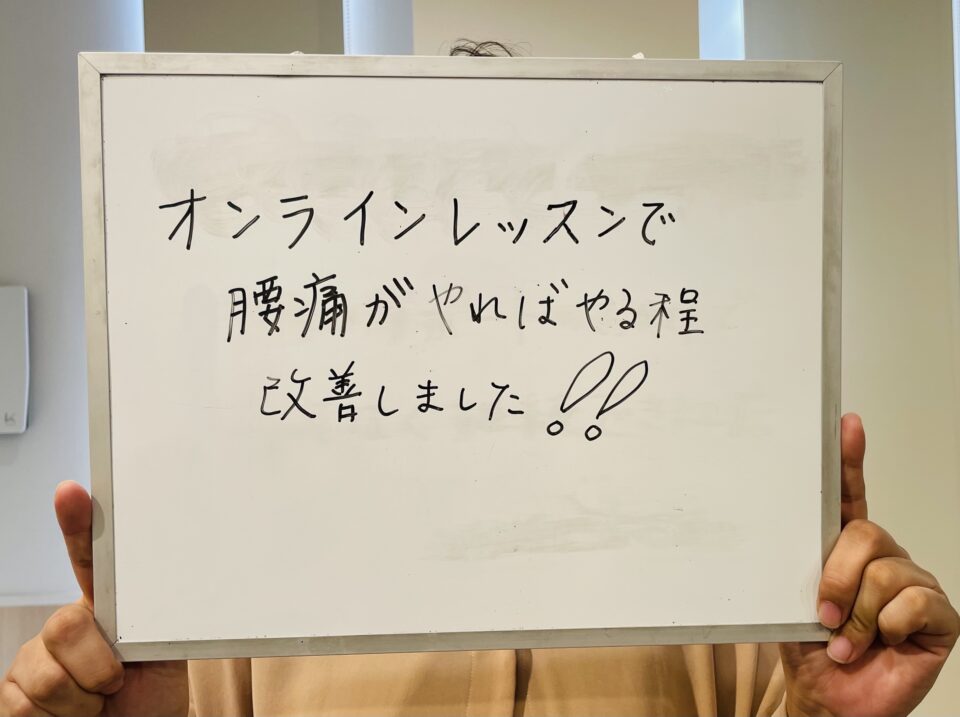 オンラインレッスンで
腰痛がやればやる程
改善しました!!